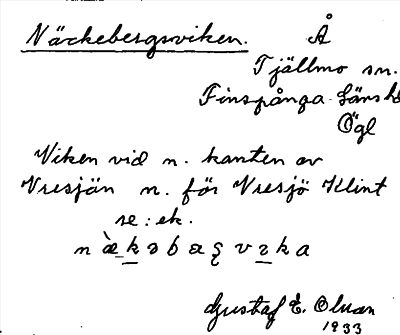 Näckebergsviken. Å
Tjällmo sn.
Finspånga läns hd
Ögl
Viken vid n. kanten av
Vresjön n. för Vresjö Klint
se: ek.
Gustaf E. Olsson
1933